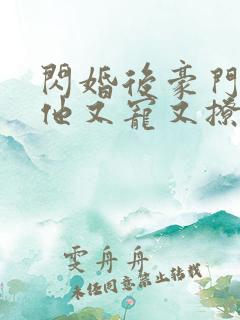 閃婚後豪門
他又寵又撩
雯舟舟
未經同意禁止轉載